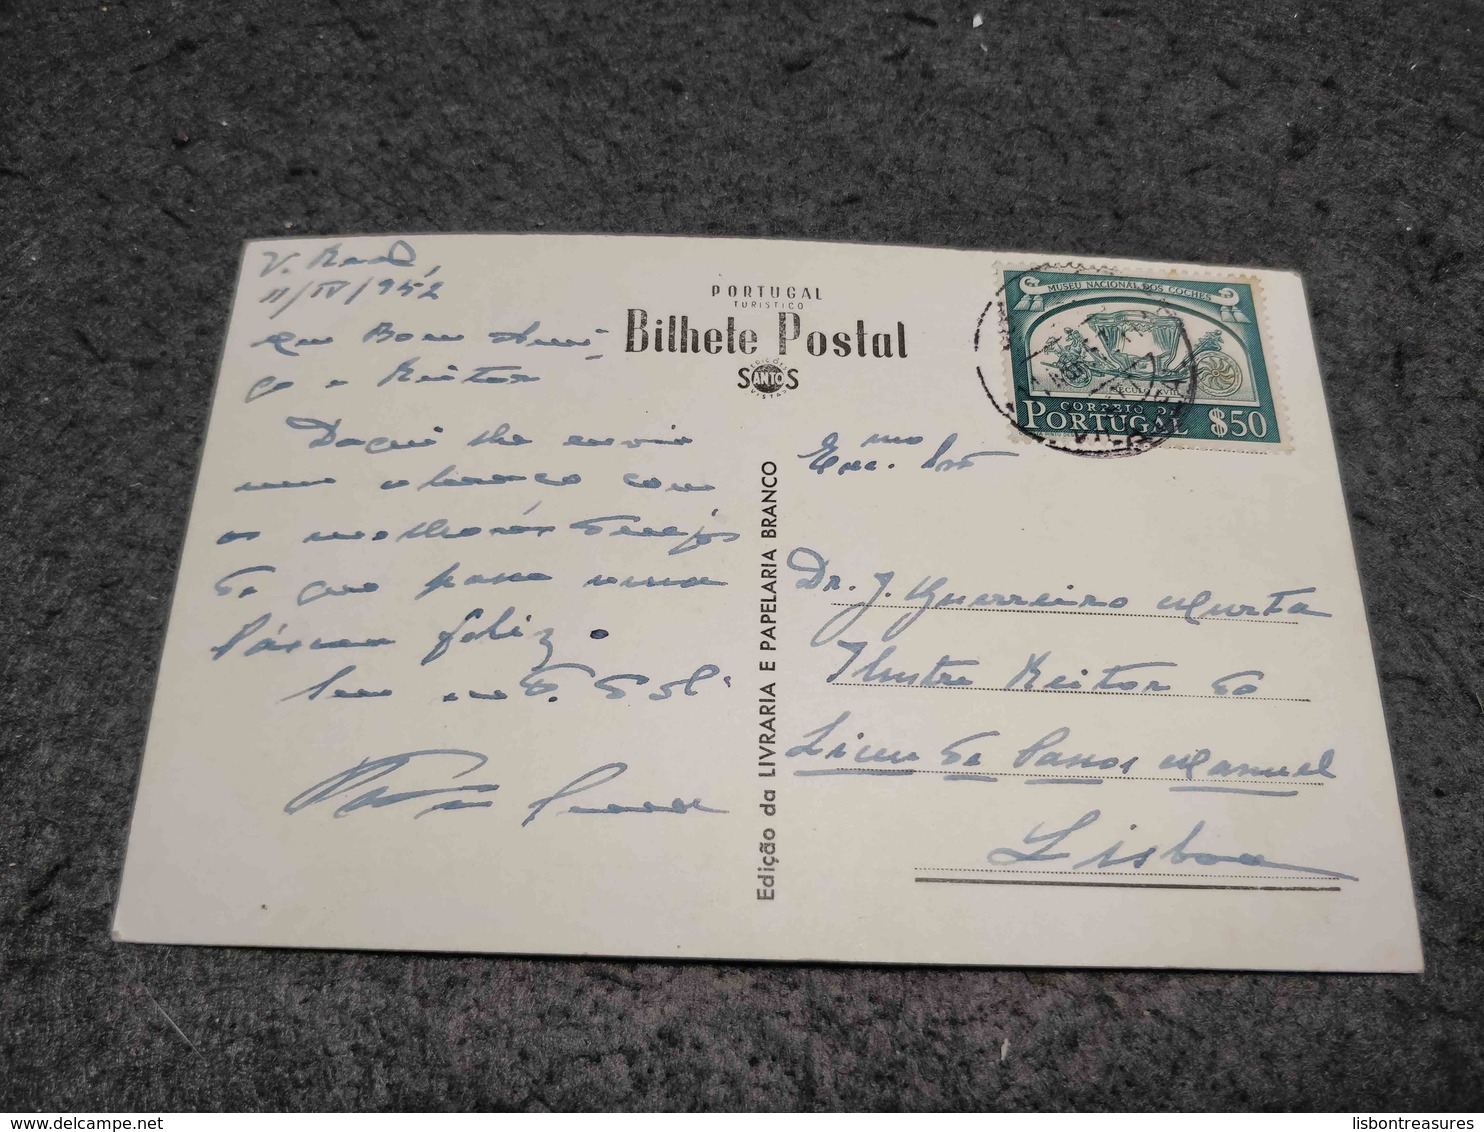 V. Real,
11/IV/952
Meu Bom Ami-
go e Reitor
Daqui lhe envio
um abraço com
os melhores desejos
de que passe uma
Páscoa feliz.
PORTUGAL
TURISTICO
Bilhete Postal
EDIÇÕES
SANTOS
VISTAS
Edição da LIVRARIA E PAPELARIA BRANCO
MUSEU NACIONAL DOS COCHES
SÉCULO XVIII
CORREIO DE
PORTUGAL $50
Exc.mo Snr.
Dr. J. Guerreiro Murta
Ilustre Reitor do
Liceu de Passos Manuel
Lisboa
lisbontreasures.com